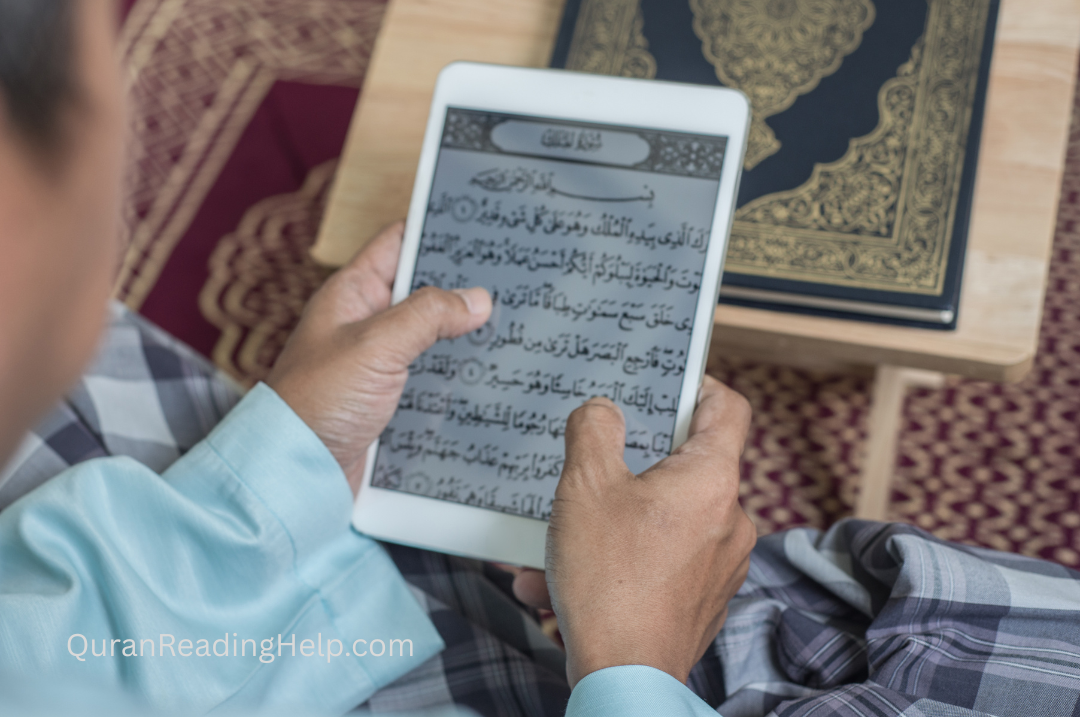 سُورَةُ الْمُلْكِ
بِسْمِ ٱللَّهِ ٱلرَّحْمَٰنِ ٱلرَّحِيمِ
ٱلَّذِى بِيَدِهِ ٱلْمُلْكُ وَهُوَ عَلَىٰ كُلِّ شَىْءٍ قَدِيرٌ ١
وَٱلْحَيَوٰةَ لِيَبْلُوَكُمْ أَيُّكُمْ أَحْسَنُ عَمَلًا وَهُوَ ٱلْعَزِيزُ ٱلْغَفُورُ
خَلَقَ سَبْعَ سَمَٰوَٰتٍ طِبَاقًا مَّا تَرَىٰ
فَٱرْجِعِ ٱلْبَصَرَ هَلْ تَرَىٰ مِن فُطُورٍ
إِلَيْكَ ٱلْبَصَرُ خَاسِئًا وَهُوَ حَسِيرٌ ٤ وَلَقَدْ
رُجُومًا لِّلشَّيَٰطِينِ وَأَعْتَدْنَا
كَفَرُوا۟ بِرَبِّهِمْ عَذَابُ جَهَنَّمَ وَبِئْسَ
شَهِيقًا وَهِىَ تَفُورُ
QuranReadingHelp.com